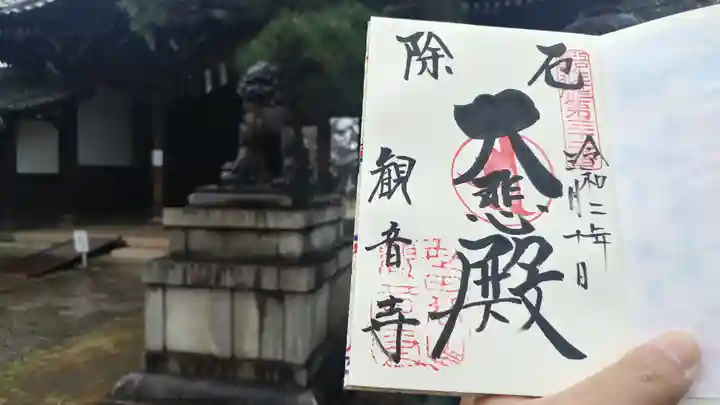 令和二年
月十日
厄除
大悲殿
観音寺